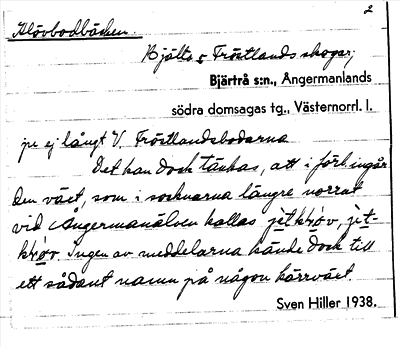 2
Klövbodbäcken.
Bjälta o Fröstlands skogar;
Bjärtrå s:n., Ångermanlands
södra domsagas tg., Västernorrl. l.
på ej långt V. Fröstlandsbodarna
Det kan dock tänkas, att i förl. ingår
den växt, som i socknarna längre norrut
vid Ångermanälven kallas jetkløv, jet-
kløv. Ingen av meddelarna kände dock till
ett sådant namn på någon kärrväxt.
Sven Hiller 1938.